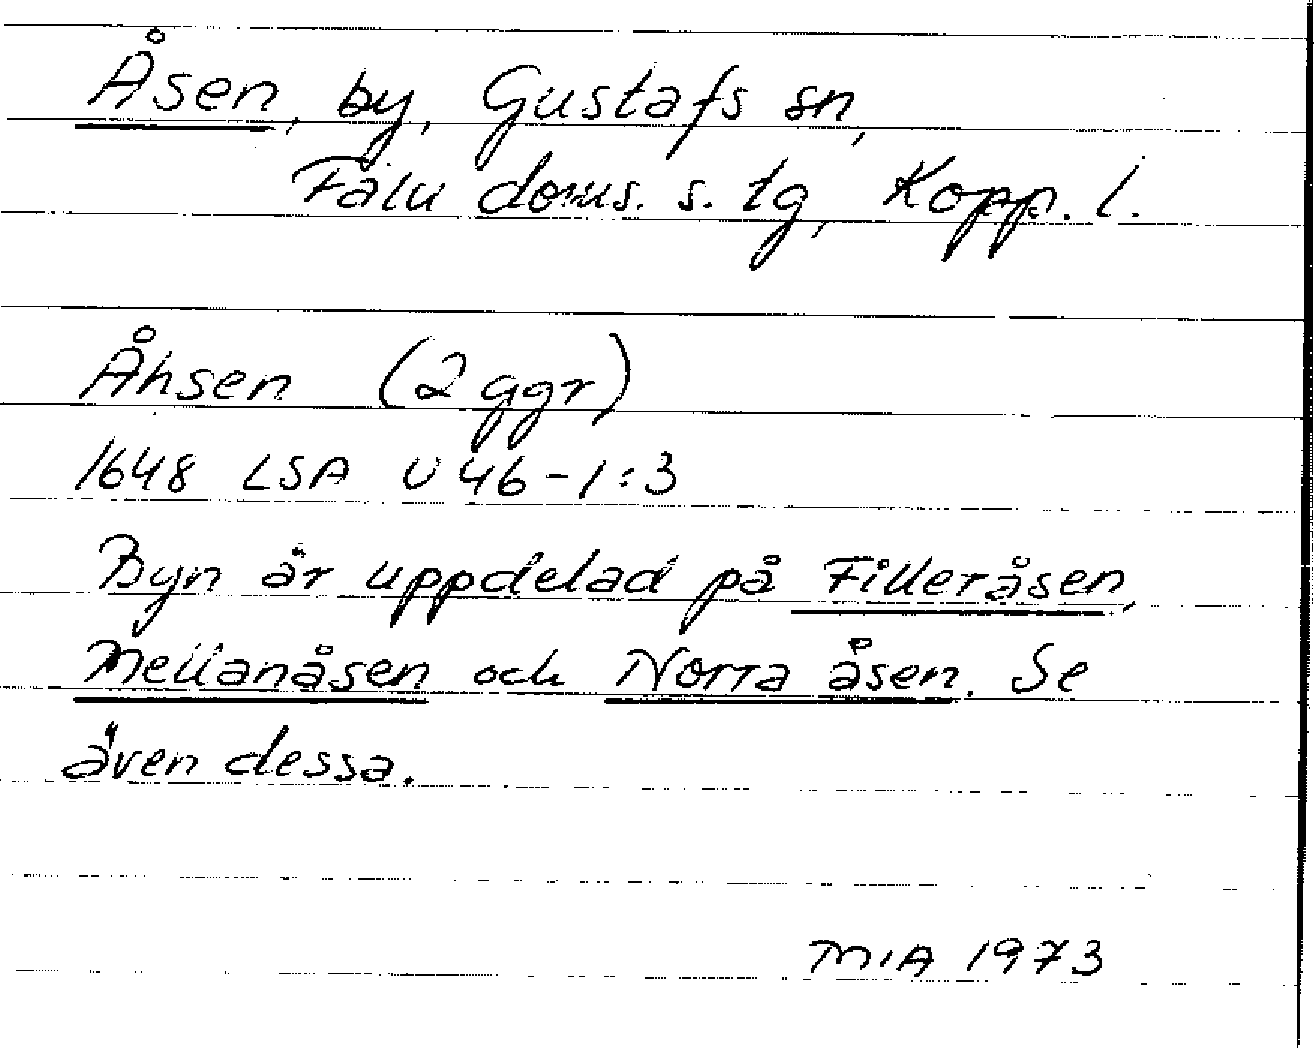 Åsen, by, Gustafs sn,
Falu doms. s. tg, Kopp. l.
Åhsen (2 ggr)
1648 LSA U 46-1:3
Byn är uppdelad på Filleråsen,
Mellanåsen och Norra åsen. Se
även dessa.
MIA 1973